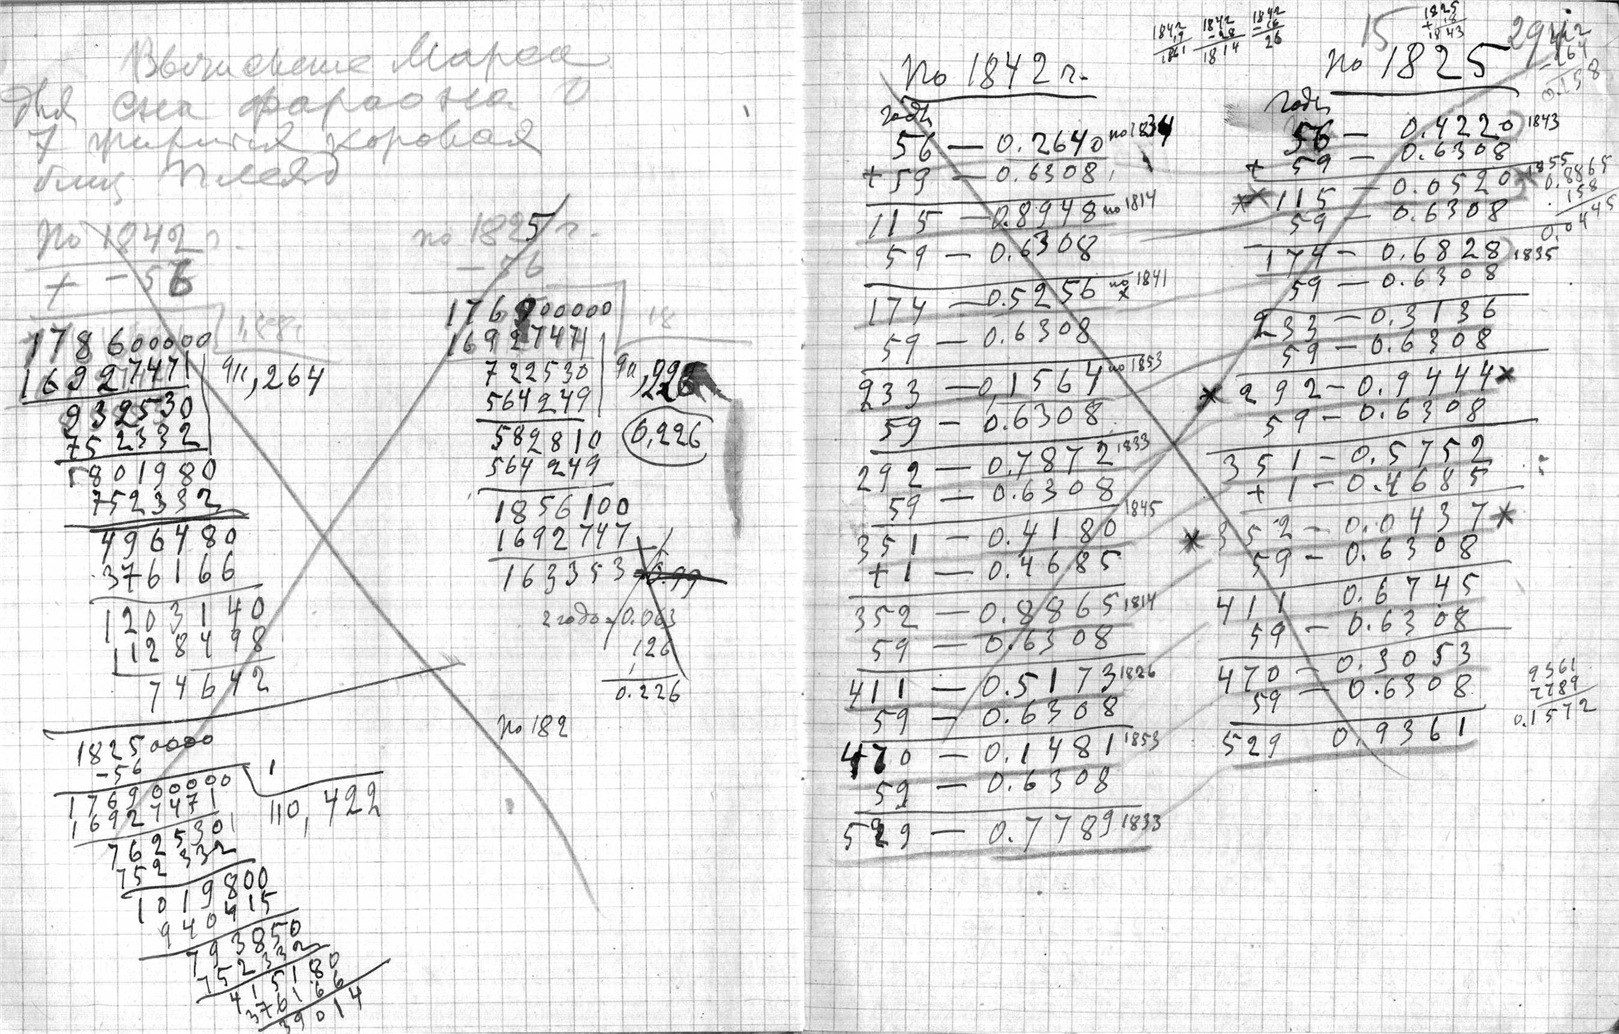 Вычисление Марса
для сна фараона о
7
по 1842 г.
+ -56
178600000
16927471
94,264
932530
752332
1801980
752332
496480
376166
1203140
1128498
74642
по 1825 г.
-56
18
16927471
722530
564249
0,226
582810
564249
1856100
1692747
163353
2 года 0.063
126
0.226
по 182
18250000
-56
176900000
16927471
110,422
762530
752332
1019800
940415
793850
752332
415180
376166
39014
1842
19
1861
1842
-28
1814
1842
16
26
по 1842 г.
годы
56 — 0.2640 по 1834
+ 59 — 0.6308
115 — 0.8948 по 1814
59 — 0.6308
174 — 0.5256 по 1841
x
59 — 0.6308
233 — 0,1564 по 1853
59 — 0.6308
292 — 0.7872 1833
59 — 0.6308
351 — 0.4180 1845
+ 1 — 0.4685
352 — 0.8865 1814
59 — 0.6308
411 — 0.5173 1826
59 — 0.6308
470 — 0.1481 1853
59 — 0.6308
529 — 0.7789 1833
15
1825
+ 18
1843
по 1825
годы
56 — 0.4220 1843
+ 59 — 0.6308
* 115 — 0.0520 * 1855
59 — 0.6308
174 — 0.6828 1835
59 — 0.6308
233 — 0.3136
59 — 0.6308
* 292 — 0.9444 *
59 — 0.6308
351 — 0.5752
+ 1 — 0.4685
* 352 — 0.0437 *
59 — 0.6308
411 — 0.6745
59 — 0.6308
470 — 0.3053
59 — 0.6308
529 0.9361
264
0.158
0.8865
.158
0.0445
9361
7789
0.1572